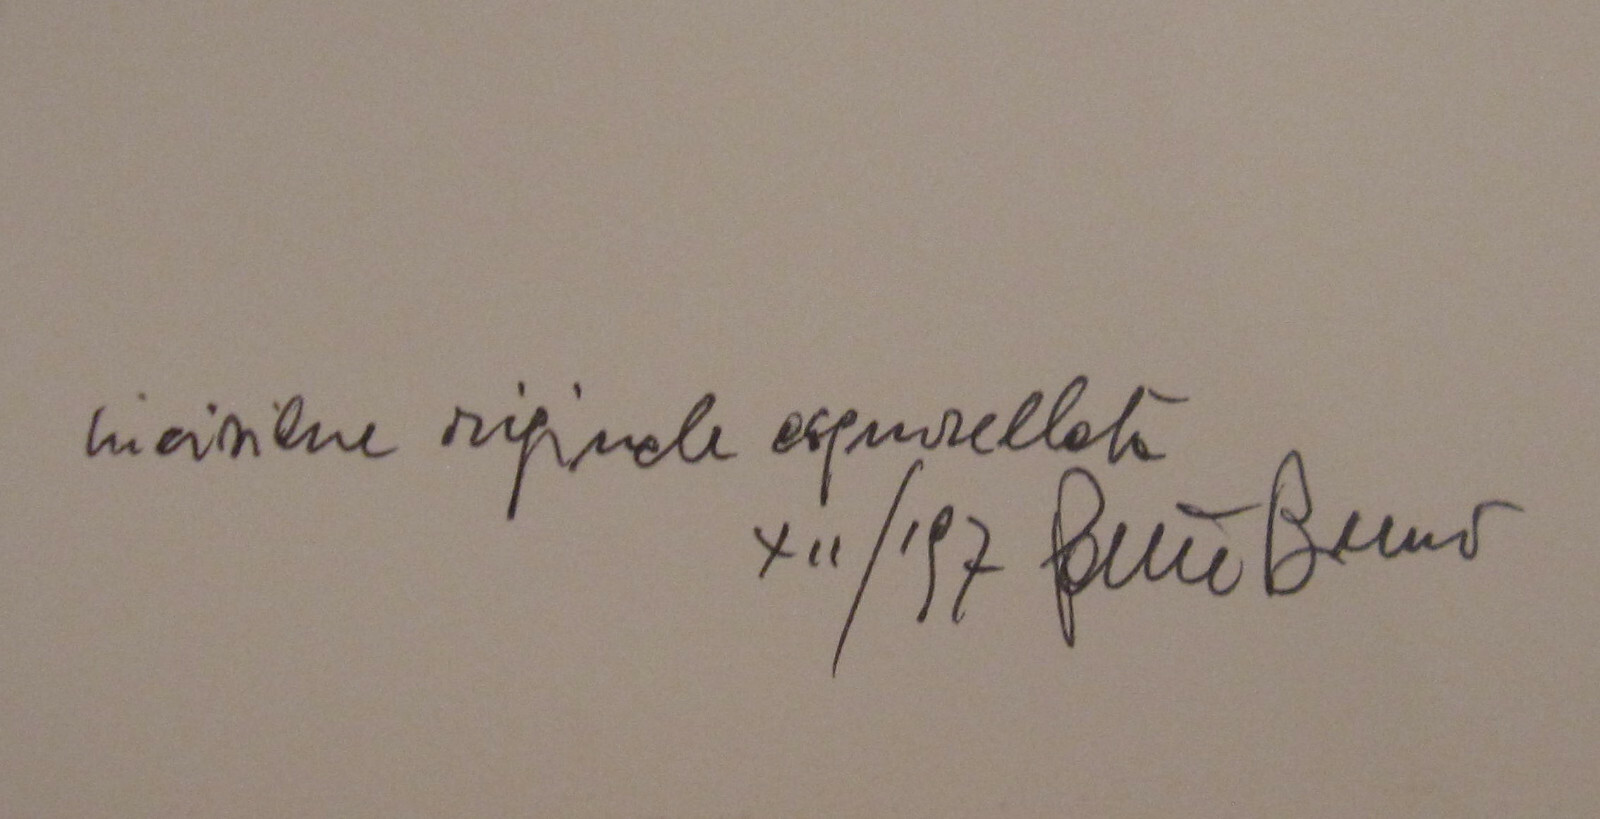 incisione originale acquarellata
XII/'97 Bruno